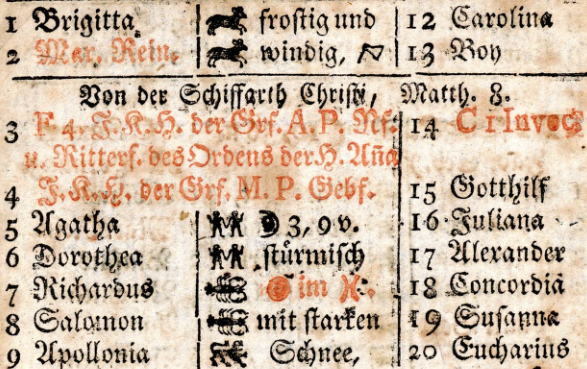 1 Brigitta frostig und 12 Carolina
2 Mar. Rein. windig, 13 Boy
Von der Schiffarth Christi, Matth. 8.
3 F 4. J. K. H. der Grf. A. P. Nf. 14 C 1 Invoc
u. Ritterf. des Ordens der H. Aña
4 J. K. H. der Grf. M. P. Gebf. 15 Gotthilf
5 Agatha 3, 9 v. 16 Juliana
6 Dorothea stürmisch 17 Alexander
7 Richardus im 18 Concordia
8 Salomon mit starken 19 Susanna
9 Apollonia Schnee, 20 Eucharius